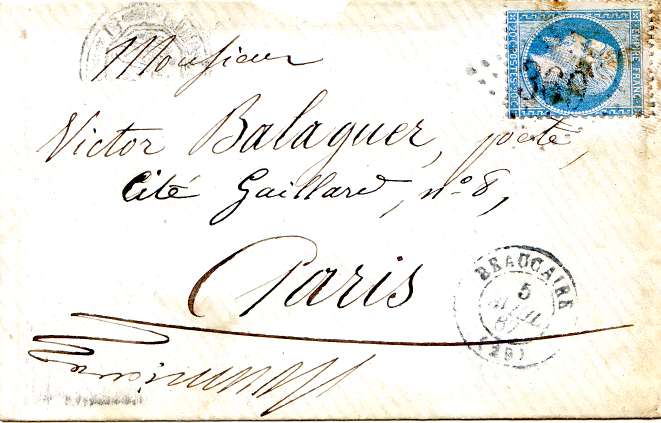 Monsieur
Victor Balaguer, poète,
Cité Gaillard, n° 8,
Paris
EMPIRE FRANC
BEAUCAIRE
5
(29)